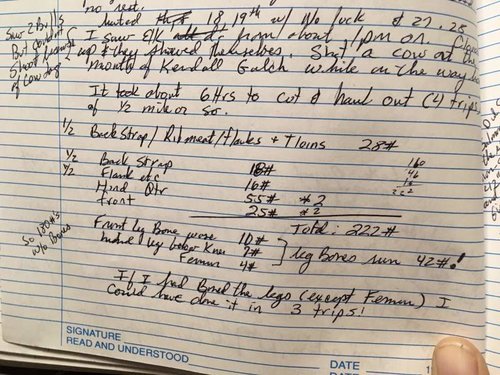 no rest.
hunted 18, 19th w/ No luck & 27, 28
Saw 2 Bulls
But couldn't
Shoot because
of cow day
I saw Elk from about 1pm on
up & they showed themselves, Shot a cow at the
mouth of Kendall Gulch while on the way
It took about 6 Hrs to cut & haul out (4 trips)
of 1/2 mile or so.
1/2 Back Strap / Rib meat / flanks + Tloins 28#
1/2 Back Strap 18#
1/2 Flank etc 16#
Hind Qtr 55# *2
front 25# *2
160
46
222
Total: 222#
So 180#'s
w/o Bones
Front leg Bone were 10#
hind leg below Knee 7#
Femur 4#
leg Bones were 42#!
If I had Boned the legs (except Femur) I
Could have done it in 3 trips!
SIGNATURE
READ AND UNDERSTOOD
DATE
DATE